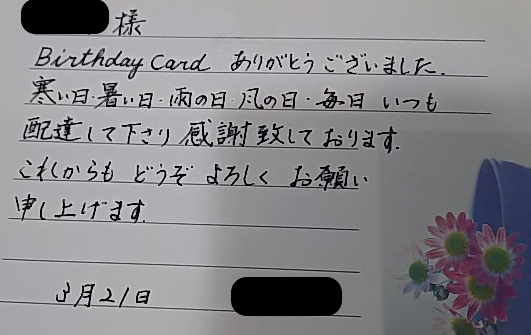 様
Birthday Card ありがとうございました.
寒い日・暑い日・雨の日・風の日・毎日 いつも
配達して下さり 感謝致しております.
これからも どうぞ よろしく お願い
申し上げます.
3月21日